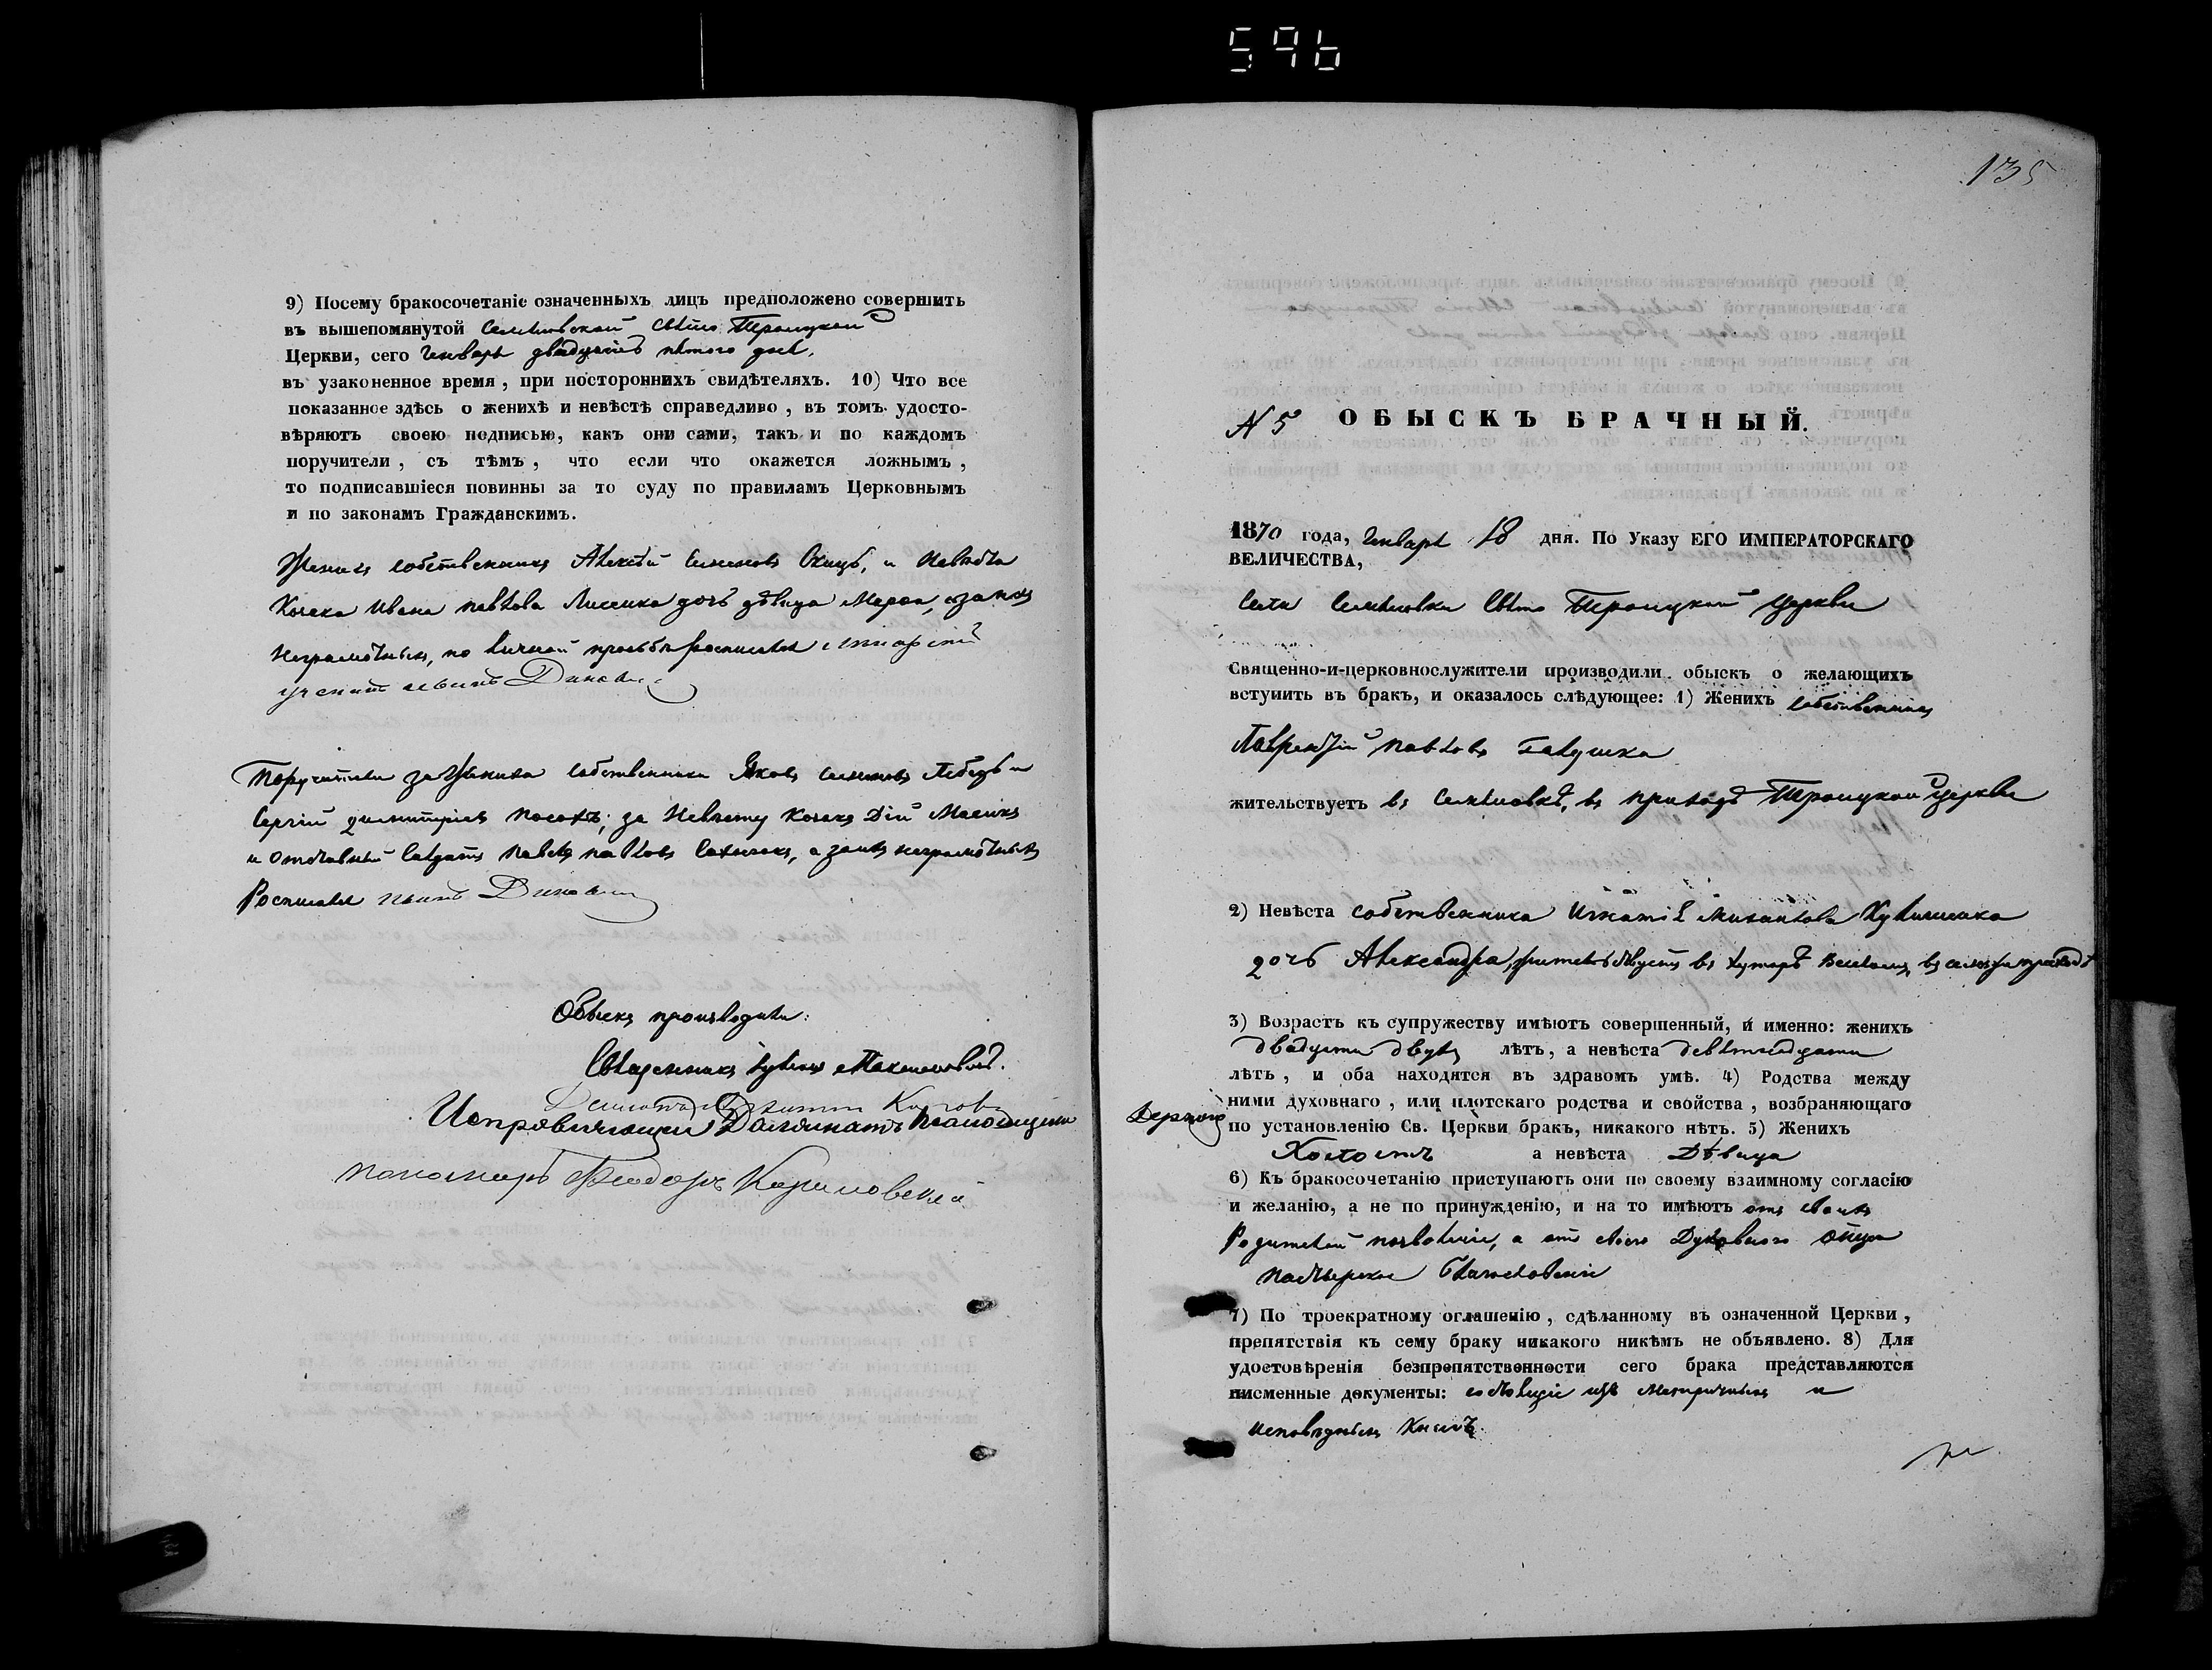 596
9) Посему бракосочетаніе означенныхъ лицъ предположено совершить
въ вышепомянутой Семеновской Свято Троицкой
Церкви, сего Генваря двадцять пятого дня.
въ узаконенное время, при постороннихъ свидѣтеляхъ. 10) Что все
показанное здѣсь о женихѣ и невѣстѣ справедливо, въ томъ удосто-
вѣряютъ своею подписью, какъ они сами, такъ и по каждомъ
поручители, съ тѣмъ, что если что окажется ложнымъ,
то подписавшіеся повинны за то суду по правиламъ Церковнымъ
и по законамъ Гражданскимъ.
Женихъ собственникъ Алексѣй Семеновъ и Невѣста
Козака Ивана Павлова Лисенка дочь дѣвица а за нихъ
неграмотныхъ, по личной прозьбѣ росписался
Поручители за Жениха собственники Яковъ Семеновъ Лебедь и
Сергій Димитріевъ за Невесту Козакъ
и отставный Солдатъ Павелъ Павловъ а за нихъ неграмотныхъ
Росписался
Обыскъ производили:
Священникъ Максимовичъ.
Исправляющій
Пономарь Феодоръ
135
N 5 ОБЫСКЪ БРАЧНЫЙ.
1870 года, Генваря 18 дня. По Указу ЕГО ИМПЕРАТОРСКАГО
ВЕЛИЧЕСТВА,
Села Семеновки Свято Троицкой Церкви
Священно-и-церковнослужители производили обыскъ о желающихъ
вступить въ бракъ, и оказалось слѣдующее: 1) Женихъ собственникъ
Лаврентій Павловъ Галушка
жительствуетъ въ Семеновкѣ, въ приходѣ Троицкой Церкви
2) Невѣста собственника Игнатія Михайлова
дочь Александра, жительствуетъ въ хуторѣ въ
3) Возрастъ къ супружеству имѣютъ совершенный, и именно: женихъ
двадцати двухъ лѣтъ, а невѣста девятнадцати
лѣтъ, и оба находятся въ здравомъ умѣ. 4) Родства между
ними духовнаго, или плотскаго родства и свойства, возбраняющаго
по установленію Св. Церкви бракъ, никакого нѣтъ. 5) Женихъ
Холостъ а невѣста Дѣвица
6) Къ бракосочетанію приступаютъ они по своему взаимному согласію
и желанію, а не по принужденію, и на то имѣютъ отъ своихъ
Родителей позволеніе, а отъ своего Духовного Отца
пастырское благословеніе
7) По троекратному оглашенію, сдѣланному въ означенной Церкви,
препятствія къ сему браку никакого никѣмъ не объявлено. 8) Для
удостовѣренія безпрепятственности сего брака представляются
писменные документы: состоящіе изъ Метричныхъ и
исповѣдныхъ Книгъ.